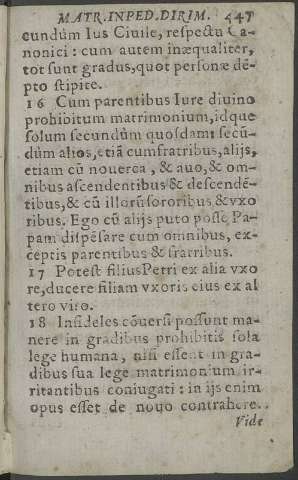 MATR.INPED.DIRIM. 447
cundùm Ius Ciuile, respectu Ca-
nonici : cum autem inæqualiter,
tot sunt gradus, quot personæ dē-
pto stipite.
16 Cum parentibus Iure diuino
prohibitum matrimonium, idque
solum secundùm quosdam: secū-
dùm alios, etiā cum fratribus, alijs,
etiam cū nouerca, & auo, & om-
nibus ascendentibus & descendē-
tibus, & cū illorū sororibus & vxo
ribus. Ego cū alijs puto posse Pa-
pam dispēsare cum omnibus, ex-
ceptis parentibus & fratribus.
17 Potest filius Petri ex alia vxo
re, ducere filiam vxoris eius ex al
tero viro.
18 Infideles cōuersi possunt ma-
nere in gradibus prohibitis sola
lege humana, nisi essent in gra-
dibus sua lege matrimonium ir-
ritantibus coniugati : in ijs enim
opus esset de nouo contrahere.
Vide